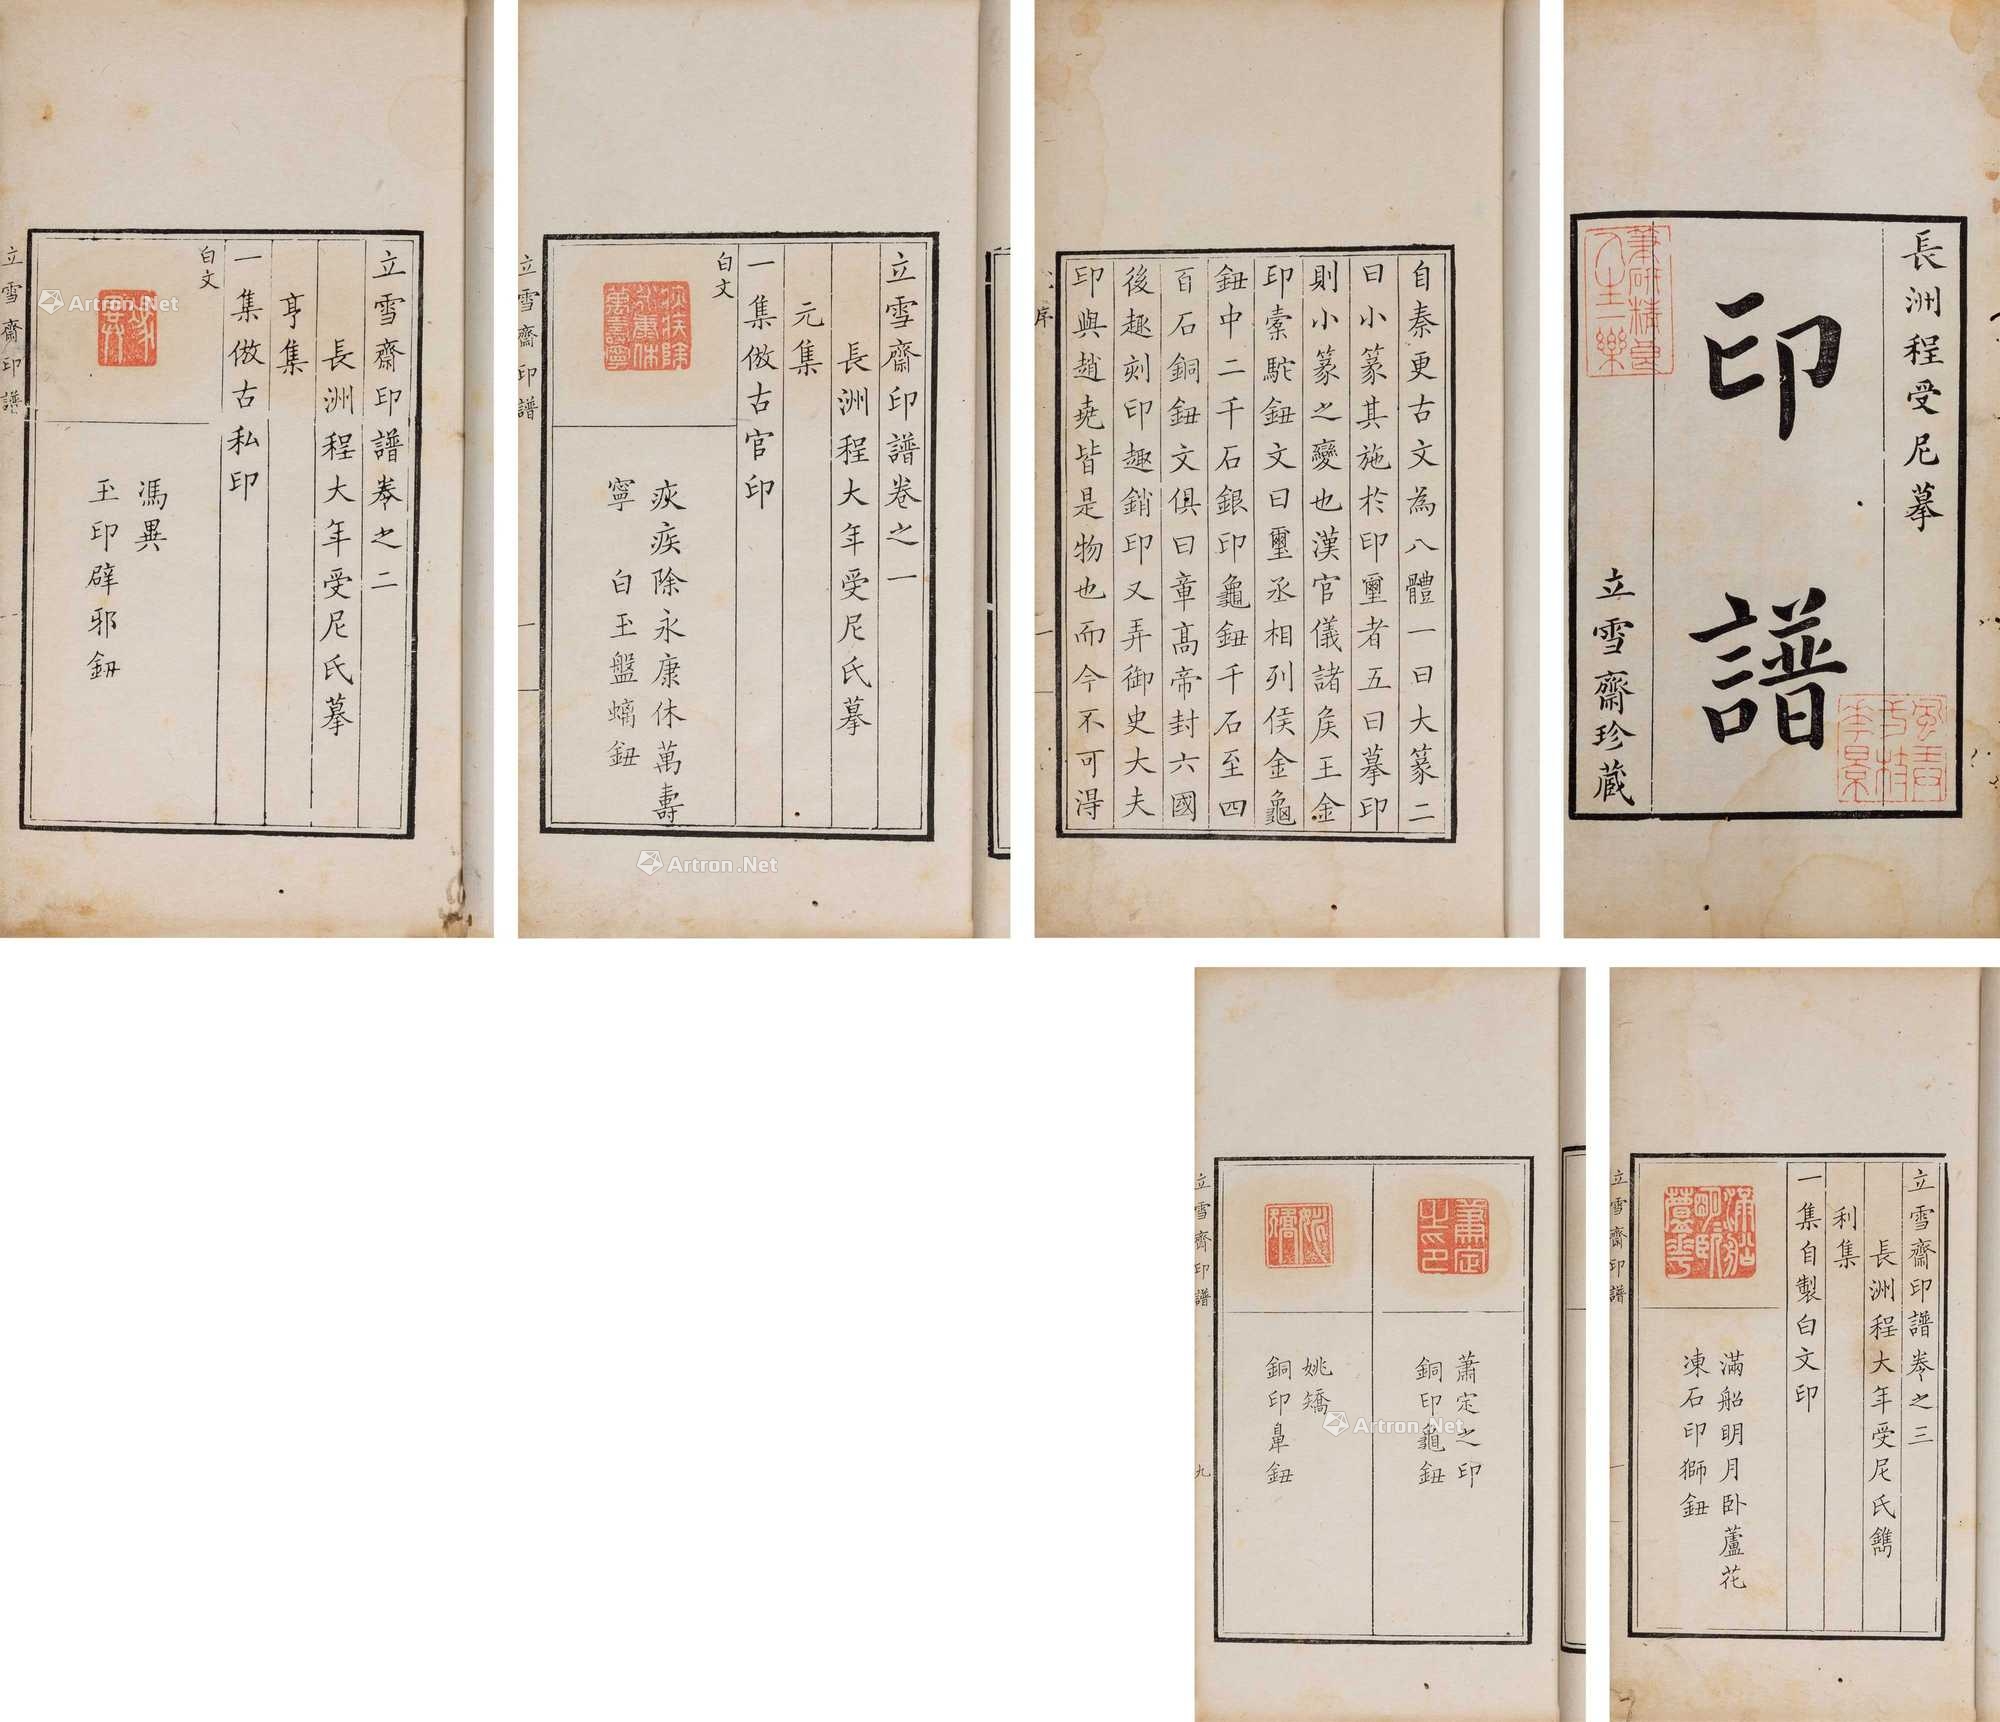 長洲程受尼摹
印譜
立雪齋珍藏
筆研精良
人生一樂
自秦更古文為八體一曰大篆二
曰小篆其施於印璽者五曰摹印
則小篆之變也漢官儀諸矦王金
印橐駝鈕文曰璽丞相列侯金龜
鈕中二千石銀印龜鈕千石至四
百石銅鈕文俱曰章高帝封六國
後趣刻印趣銷印又弄御史大夫
印與趙堯皆是物也而今不可得
序
立雪齋印譜卷之一
長洲程大年受尼氏摹
元集
一集倣古官印
白文
疢疾除永康休萬壽
寧 白玉盤螭鈕
立雪齋印譜
一
立雪齋印譜卷之二
長洲程大年受尼氏摹
亨集
一集倣古私印
白文
馮異
玉印辟邪鈕
立雪齋印譜
一
立雪齋印譜卷之三
長洲程大年受尼氏鐫
利集
一集自製白文印
滿船明月臥蘆花
凍石印獅鈕
立雪齋印譜
一
蕭定之印
銅印龜鈕
姚矯
銅印鼻鈕
立雪齋印譜
九
Artron.Net
Artron.Net
Artron.Net